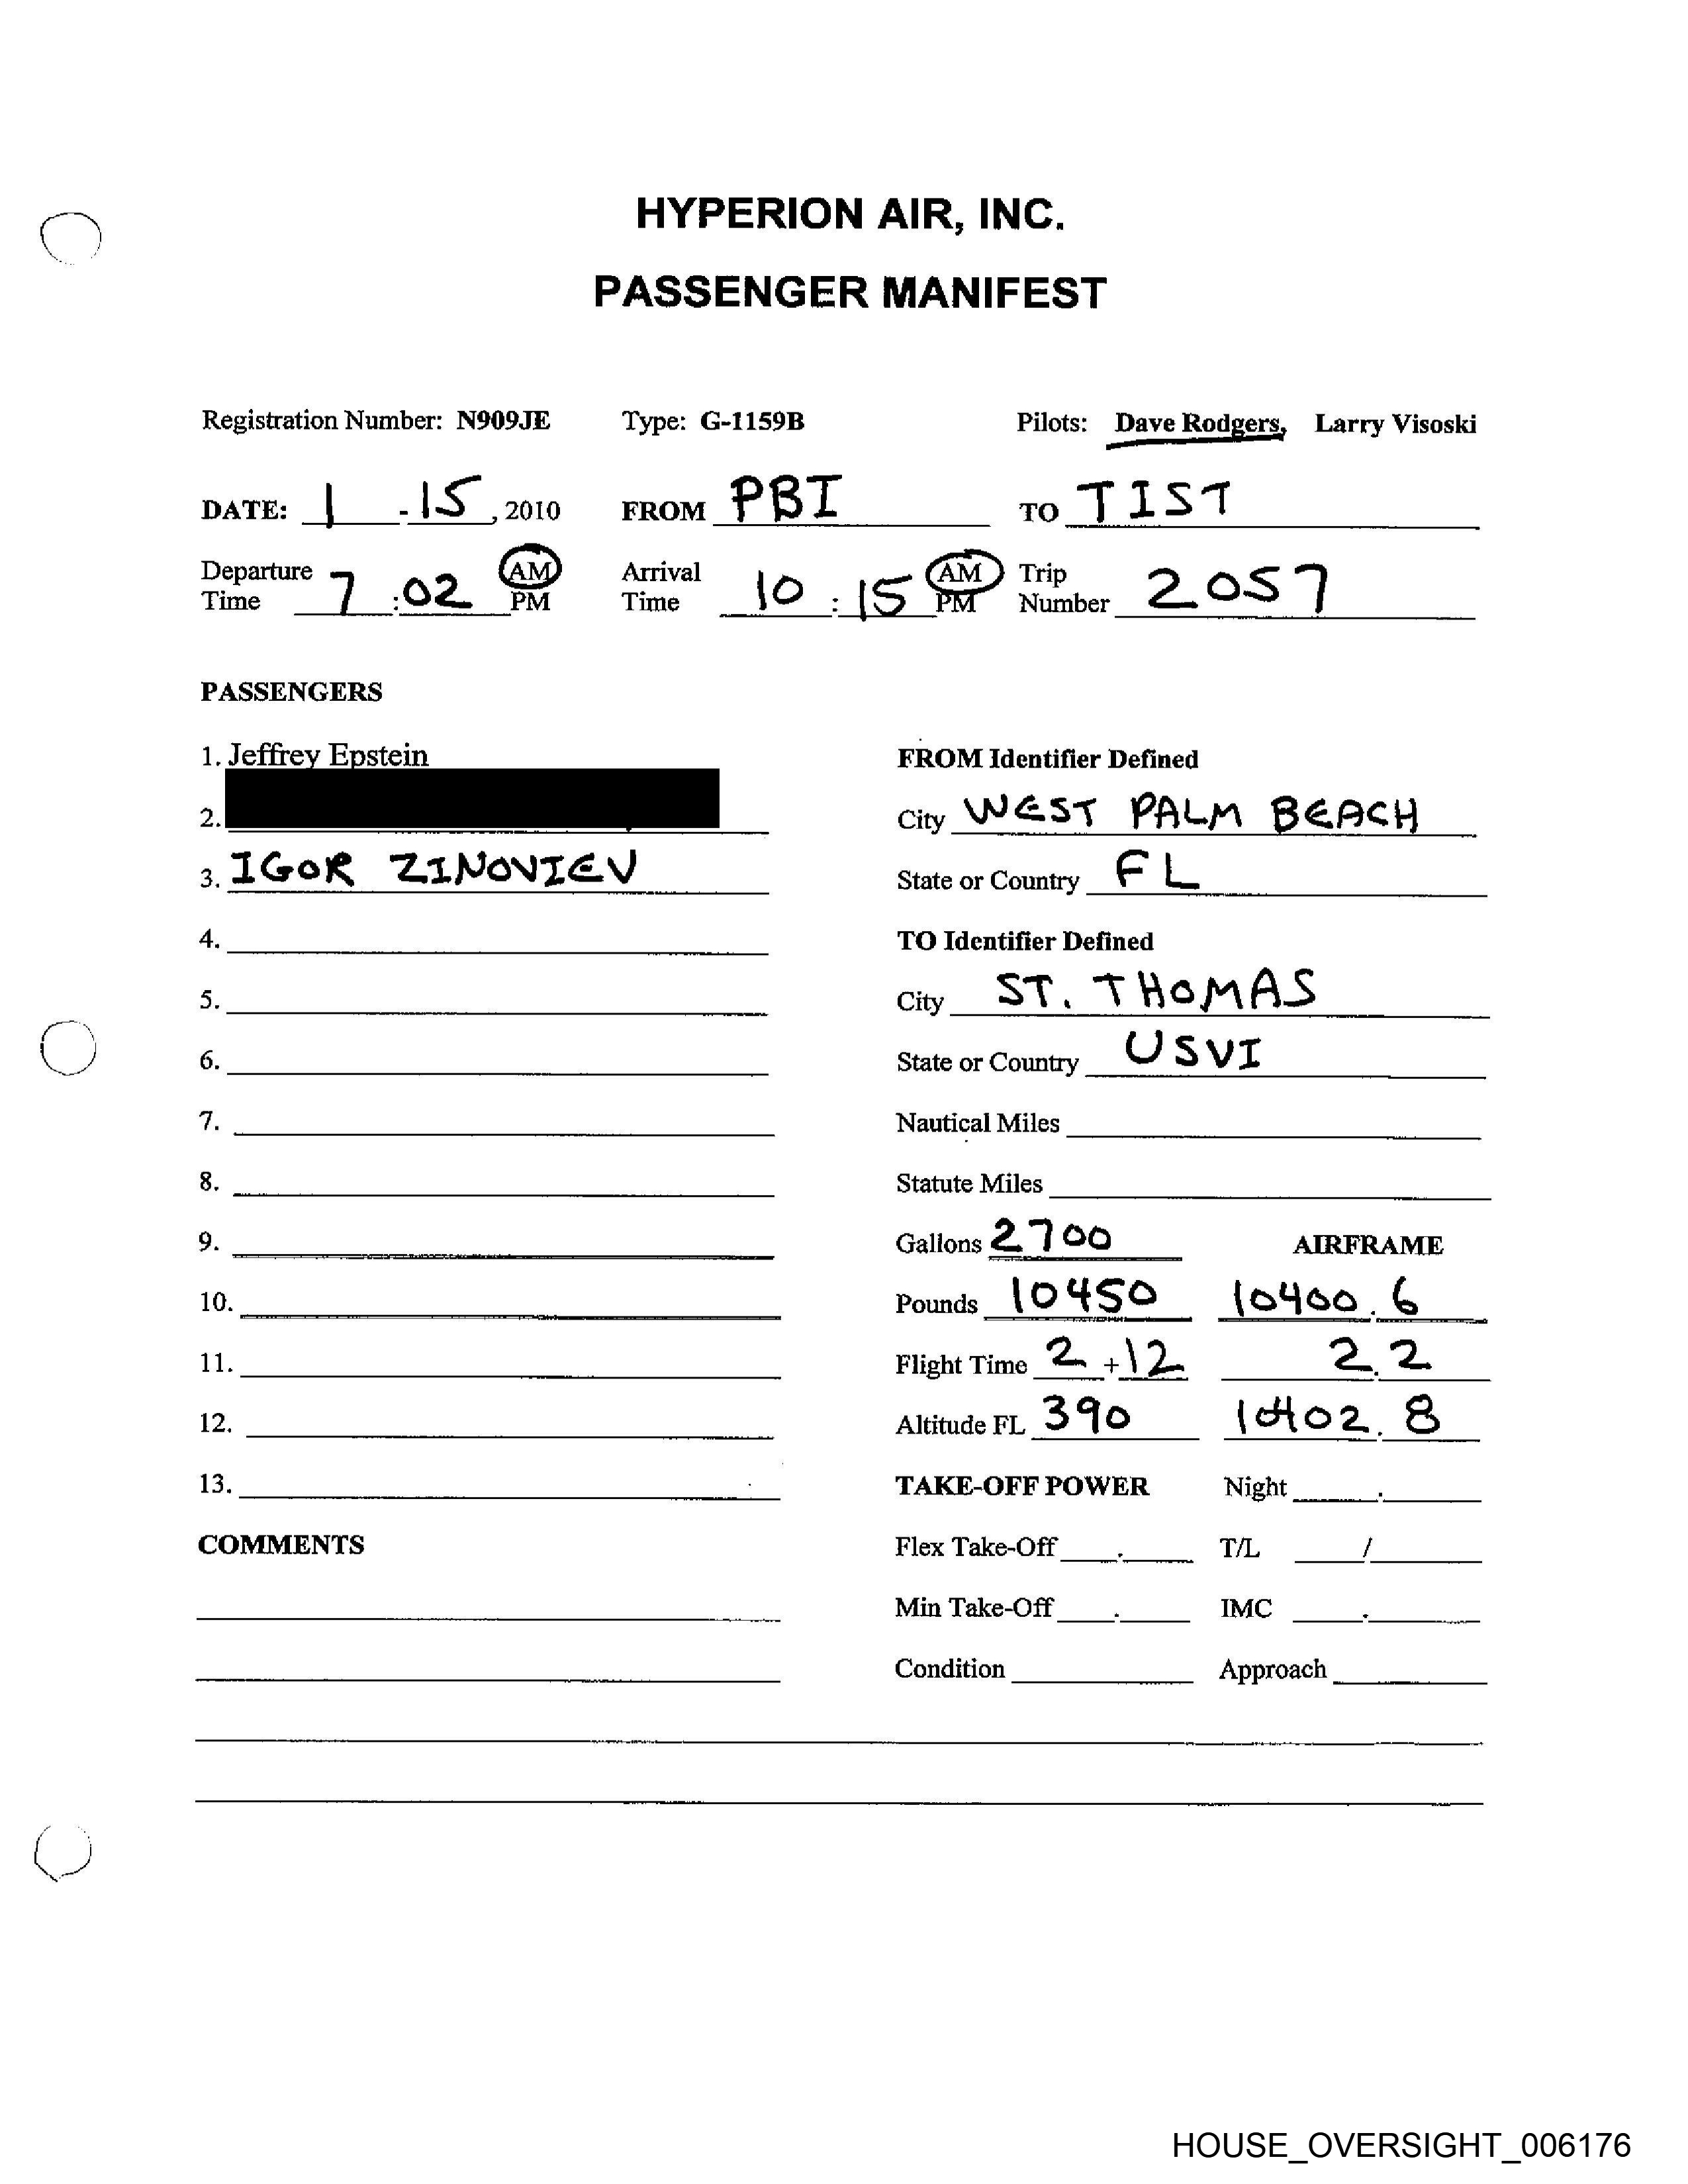 HYPERION AIR, INC.
PASSENGER MANIFEST
Registration Number: N909JE Type: G-1159B Pilots: Dave Rodgers, Larry Visoski
DATE: 1 - 15, 2010 FROM PBI TO TIST
Departure Time 7:02 AM PM Arrival Time 10:15 AM PM Trip Number 2057
PASSENGERS
1. Jeffrey Epstein
2.
3. IGOR ZINOVIEV
4.
5.
6.
7.
8.
9.
10.
11.
12.
13.
COMMENTS
FROM Identifier Defined
City WEST PALM BEACH
State or Country FL
TO Identifier Defined
City ST. THOMAS
State or Country USVI
Nautical Miles
Statute Miles
Gallons 2700 AIRFRAME
Pounds 10450 10400.6
Flight Time 2 + 12 2.2
Altitude FL 390 10402.8
TAKE-OFF POWER Night .
Flex Take-Off . T/L /
Min Take-Off . IMC .
Condition Approach
HOUSE_OVERSIGHT_006176